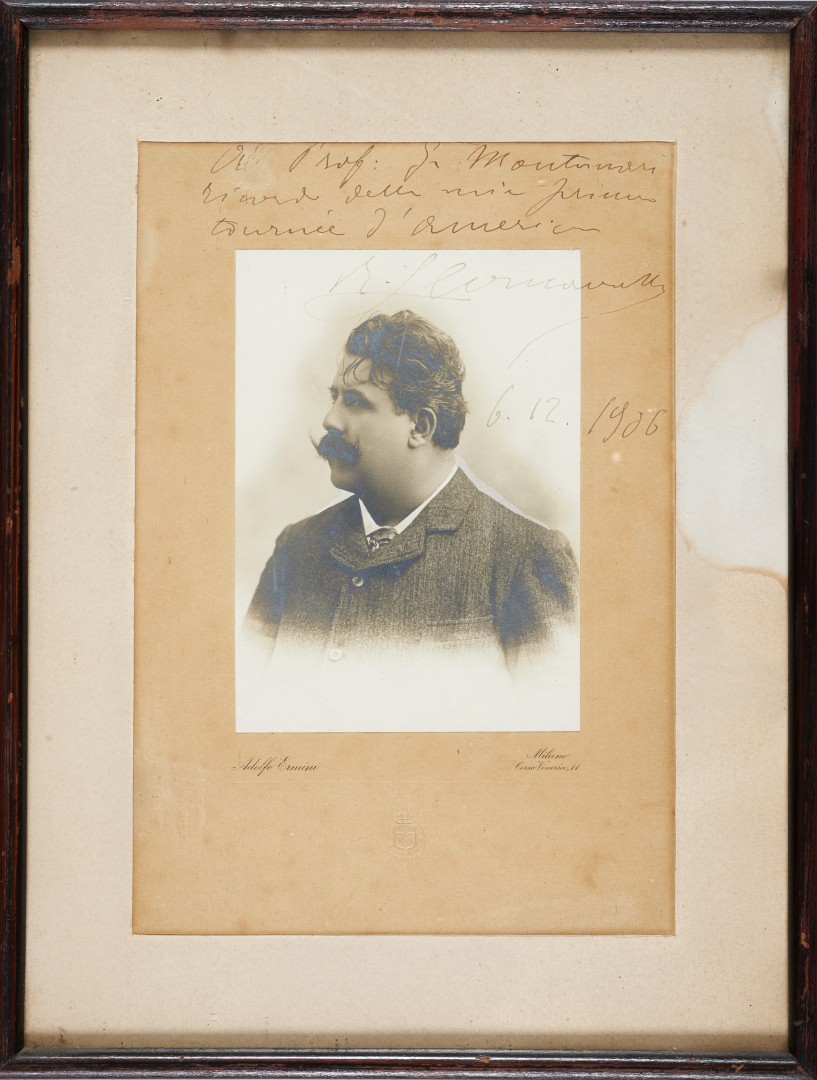 Al Prof: G. Montanari
ricordo della mia prima
tournée d'America
R. Leoncavallo
6. 12. 1906
Adolfo Ermini
Milano
Corso Venezia, 11